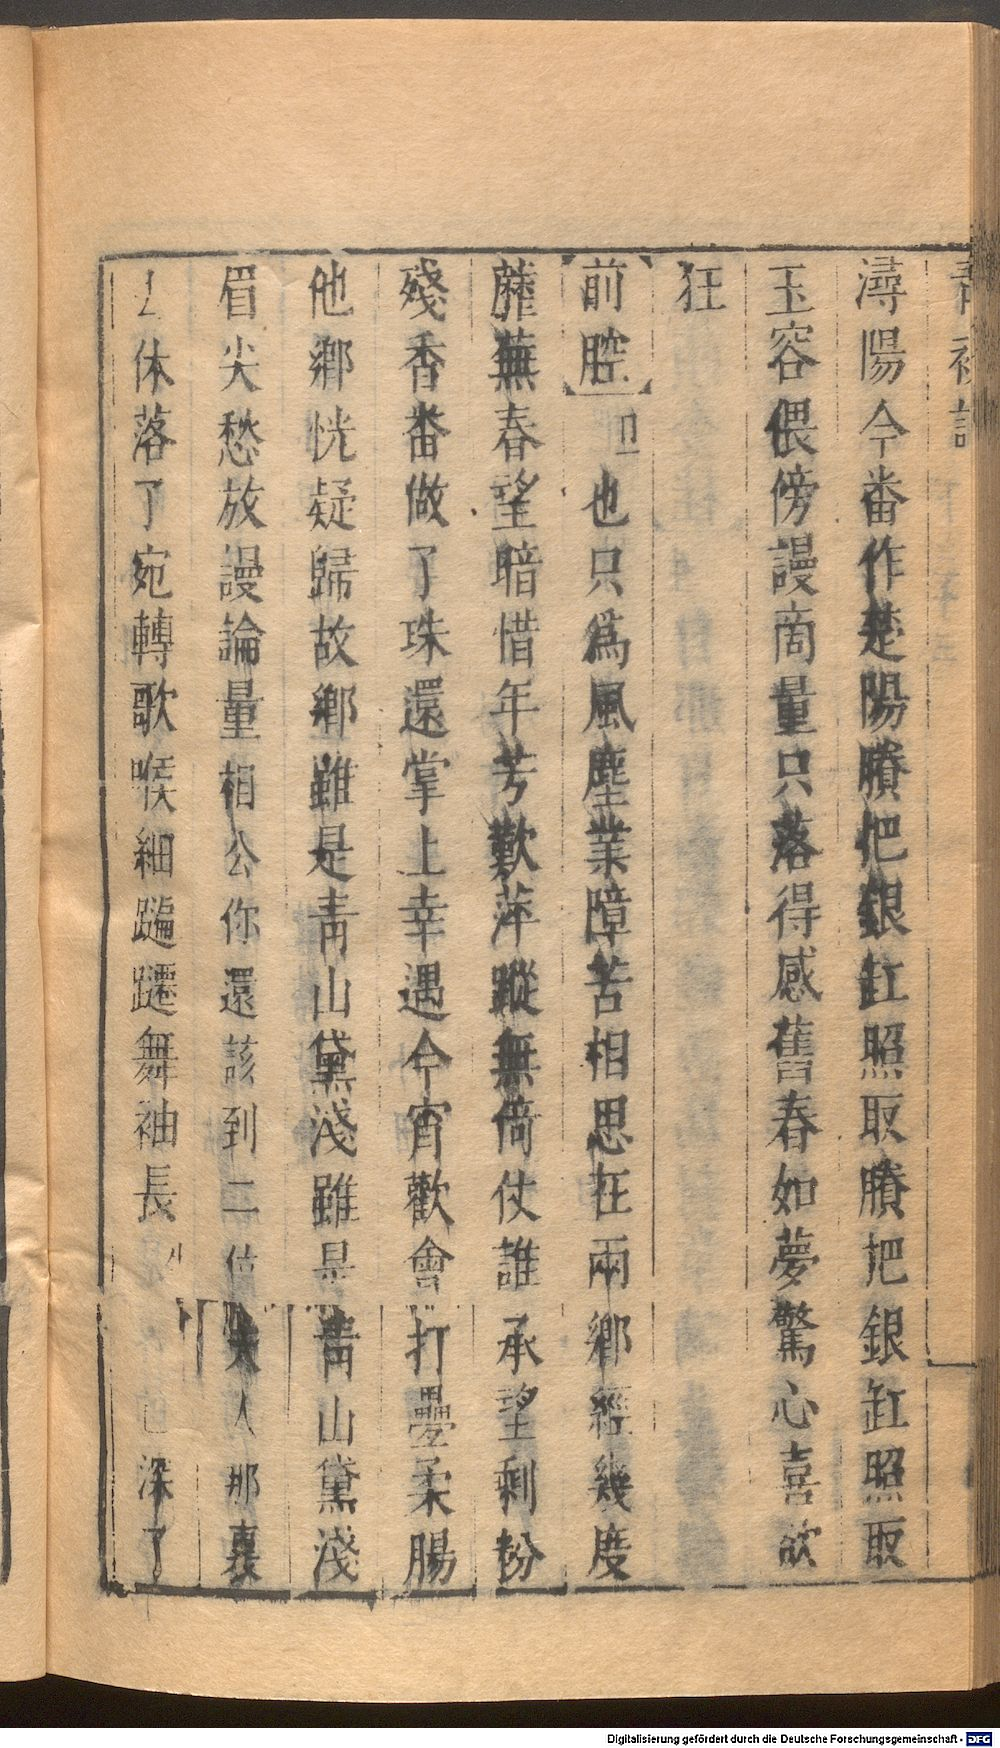 青衫記
潯陽今番作楚陽賸把銀缸照取賸把銀缸照取
玉容偎傍謾商量只落得感舊春如夢驚心喜欲
狂
前腔 也只爲風塵業障苦相思在兩鄉經幾度
蘼蕪春望暗惜年芳歎萍蹤無倚仗誰承望剩粉
殘香畨做了珠還掌上幸遇今宵歡會打疊柔腸
他鄉恍疑歸故鄉雖是青山黛淺雖是青山黛淺
眉尖愁放謾論量相公你還該到二位夫人那裏
休落了宛轉歌喉細蹁躚舞袖長 深了
Digitalisierung gefördert durch die Deutsche Forschungsgemeinschaft - DFG